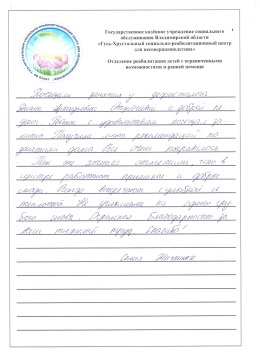 Государственное казённое учреждение социального
обслуживания Владимирской области
«Гусь-Хрустальный социально-реабилитационный центр
для несовершеннолетних»
Отделение реабилитации детей с ограниченными
возможностями и ранней помощи
Посещали занятия у дефектолога
и добрый
Ребёнок с удовольствием посещал за-
нятия. Получили много рекомендаций по
занятиям дома. Все очень понравилось.
Так же хочется отметить, что в
центре работают приятные и добрые
люди. Всегда встречают с улыбкой и
теплотой. Не услышали ни одного гру-
бого слова. Огромная благодарность за
ваш труд. Спасибо!
Семья